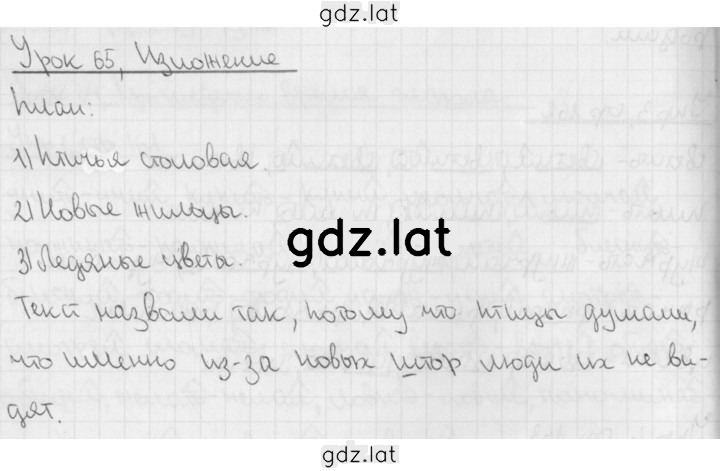 gdz.lat
Урок 65, Изложение
План:
1) Птичья столовая.
2) Новые жильцы.
gdz.lat
3) Ледяные цветы.
Текст назвали так, потому что птицы думали,
что именно из-за новых штор люди их не ви-
дят.
gdz.lat